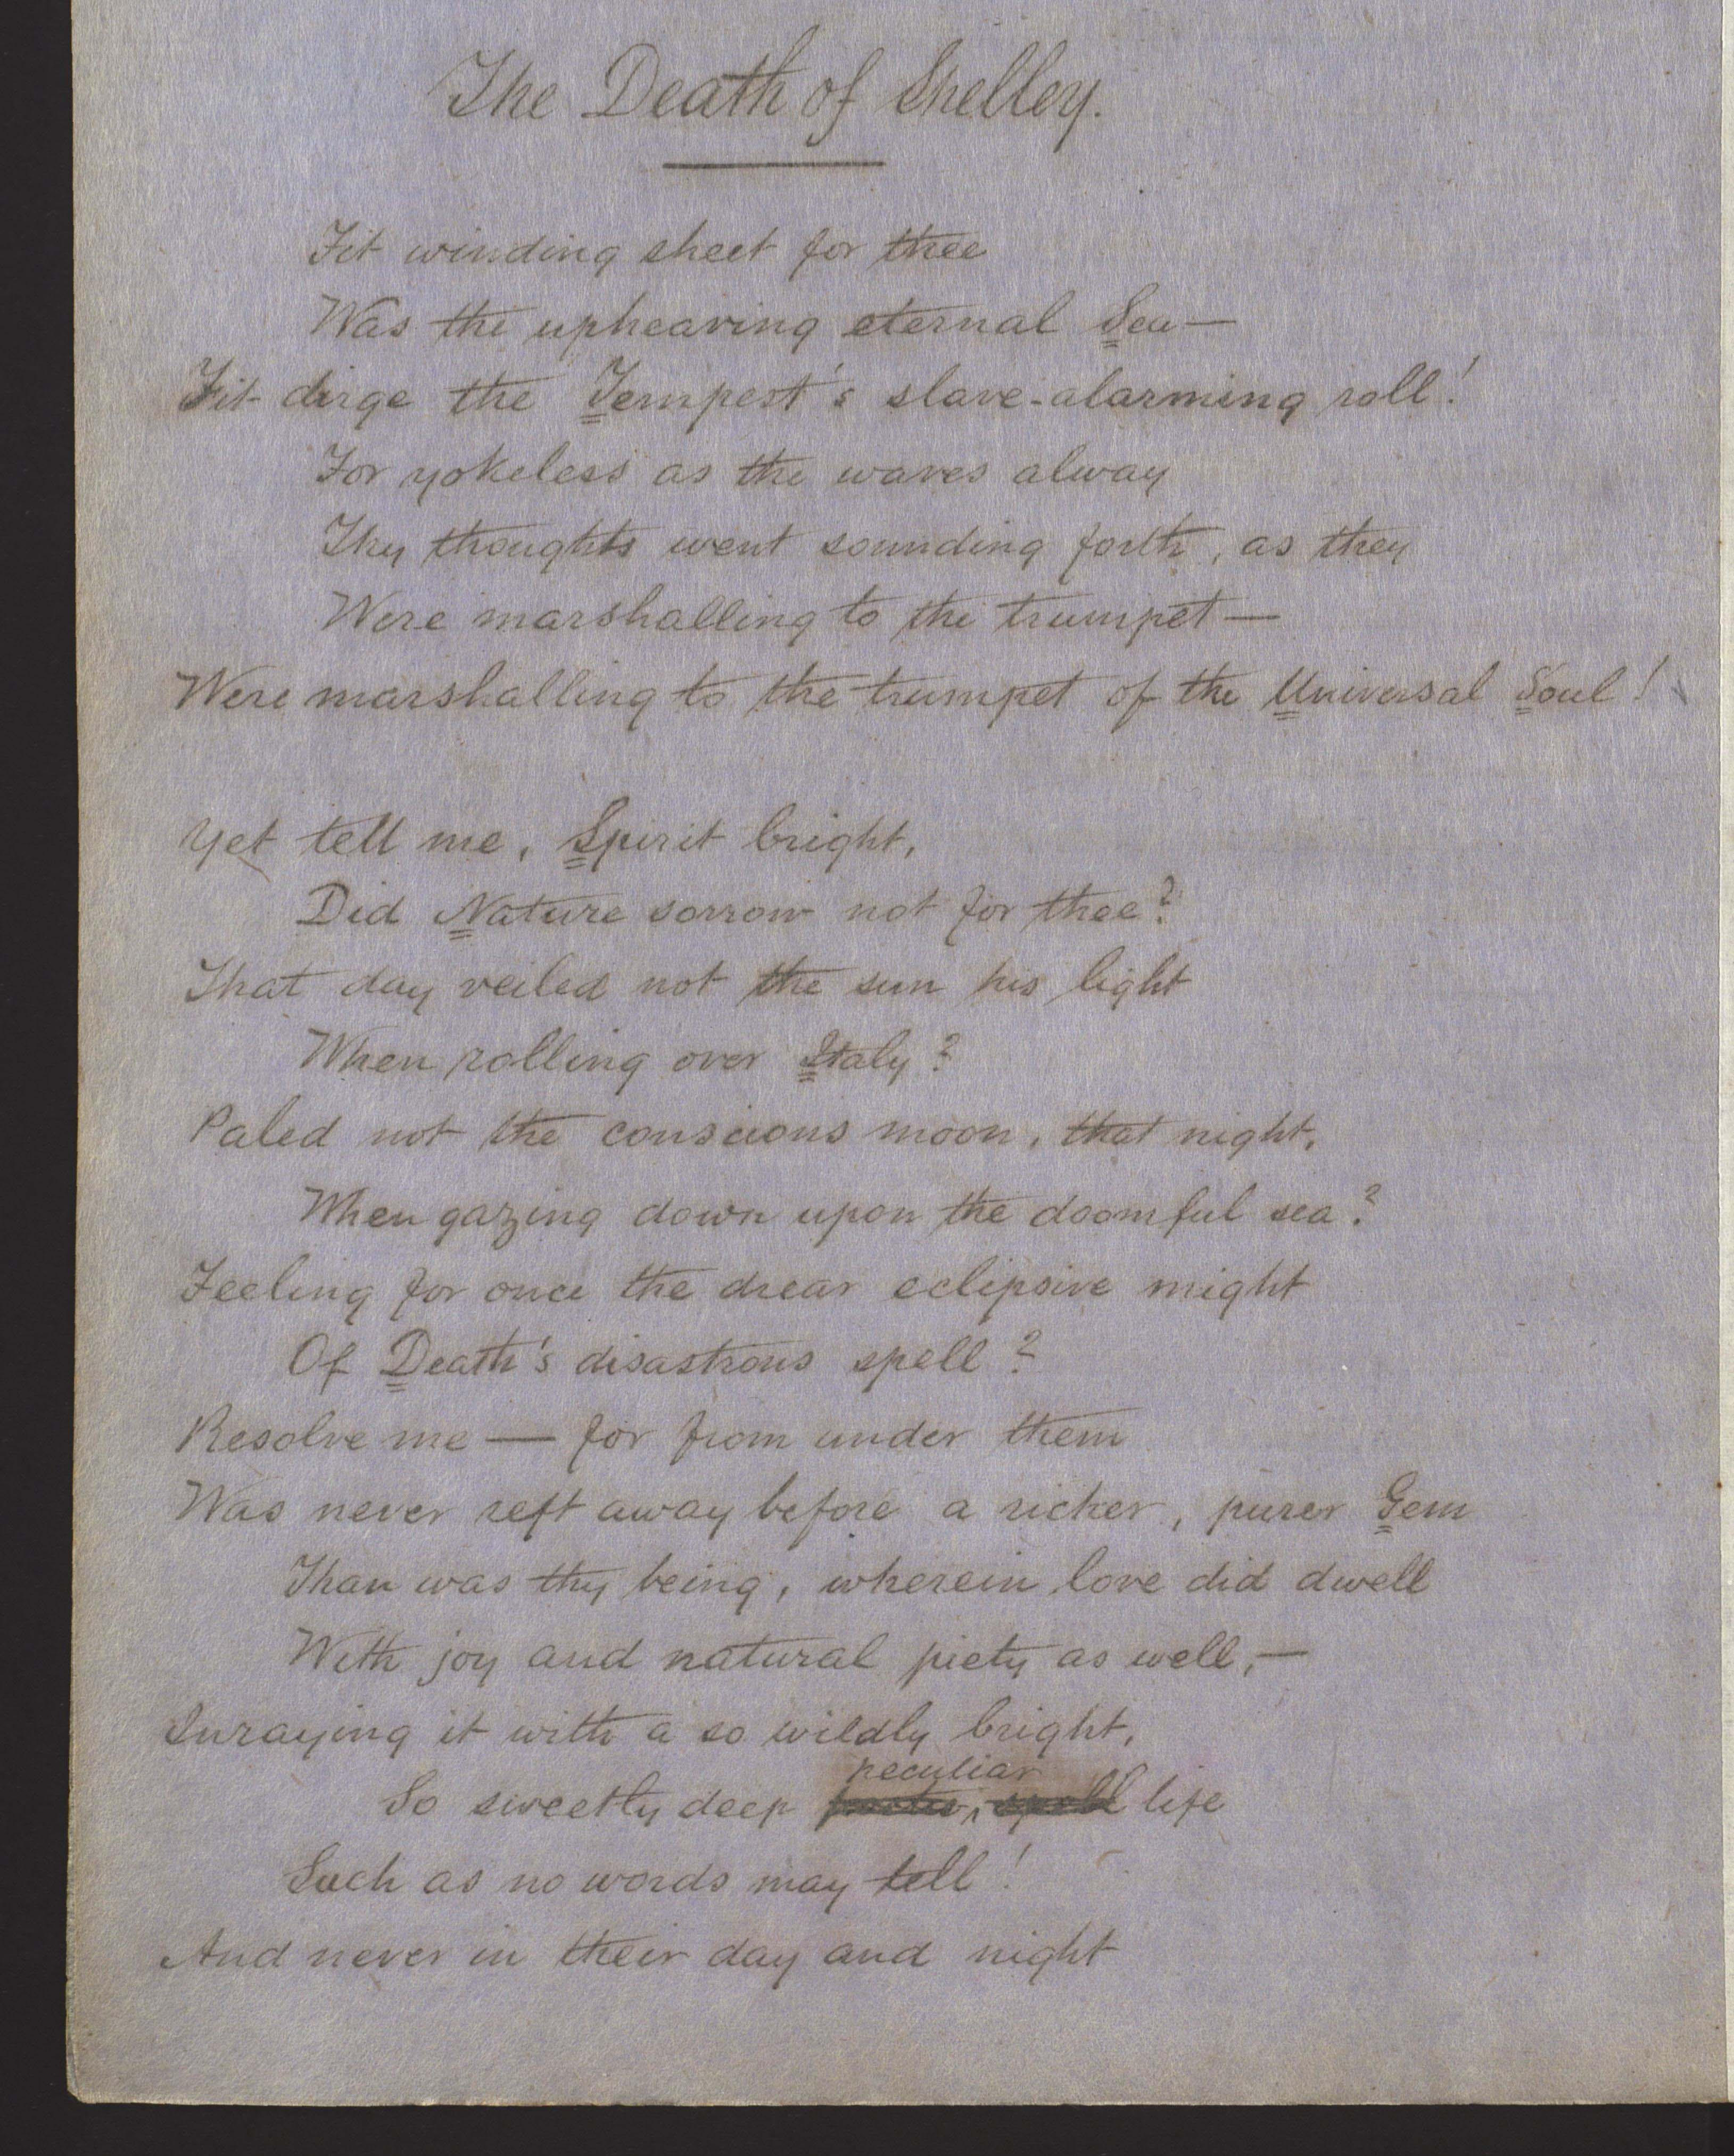 The Death of Shelley.
Fit winding sheet for thee
Was the upheaving eternal Sea—
Fit dirge the Tempest's slave-alarming roll!
For yokeless as the waves alway
Thy thoughts went sounding forth, as they
Were marshalling to the trumpet—
Were marshalling to the trumpet of the Universal Soul!
Yet tell me, Spirit bright,
Did Nature sorrow not for thee?
That day veiled not the sun his light
When rolling over Italy?
Paled not the conscious moon, that night,
When gazing down upon the doomful sea?
Feeling for once the drear eclipsive might
Of Death's disastrous spell?
Resolve me — for from under them
Was never reft away before a richer, purer Gem
Than was thy being, wherein love did dwell
With joy and natural piety as well,—
Inraying it with a so wildly bright,
peculiar
So sweetly deep life
Such as no words may tell!
And never in their day and night